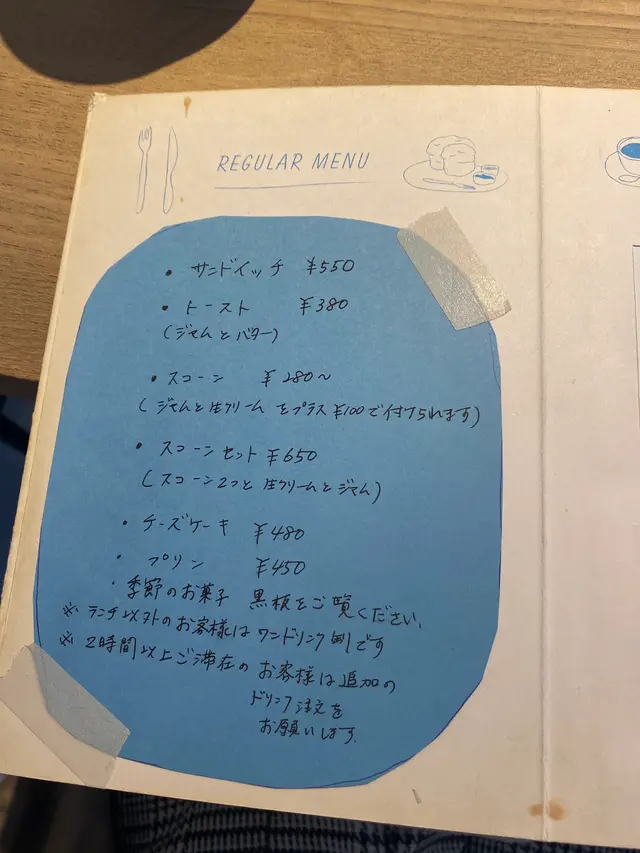 REGULAR MENU
・サンドイッチ ¥550
・トースト ¥380
(ジャムとバター)
・スコーン ¥280〜
(ジャムと生クリームをプラス¥100で付けられます)
・スコーンセット ¥650
(スコーン2つと生クリームとジャム)
・チーズケーキ ¥480
・プリン ¥450
・季節のお菓子 黒板をご覧ください。
※ランチ以外のお客様はワンドリンク制です
※2時間以上ご滞在のお客様は追加の
ドリンク注文を
お願いします。